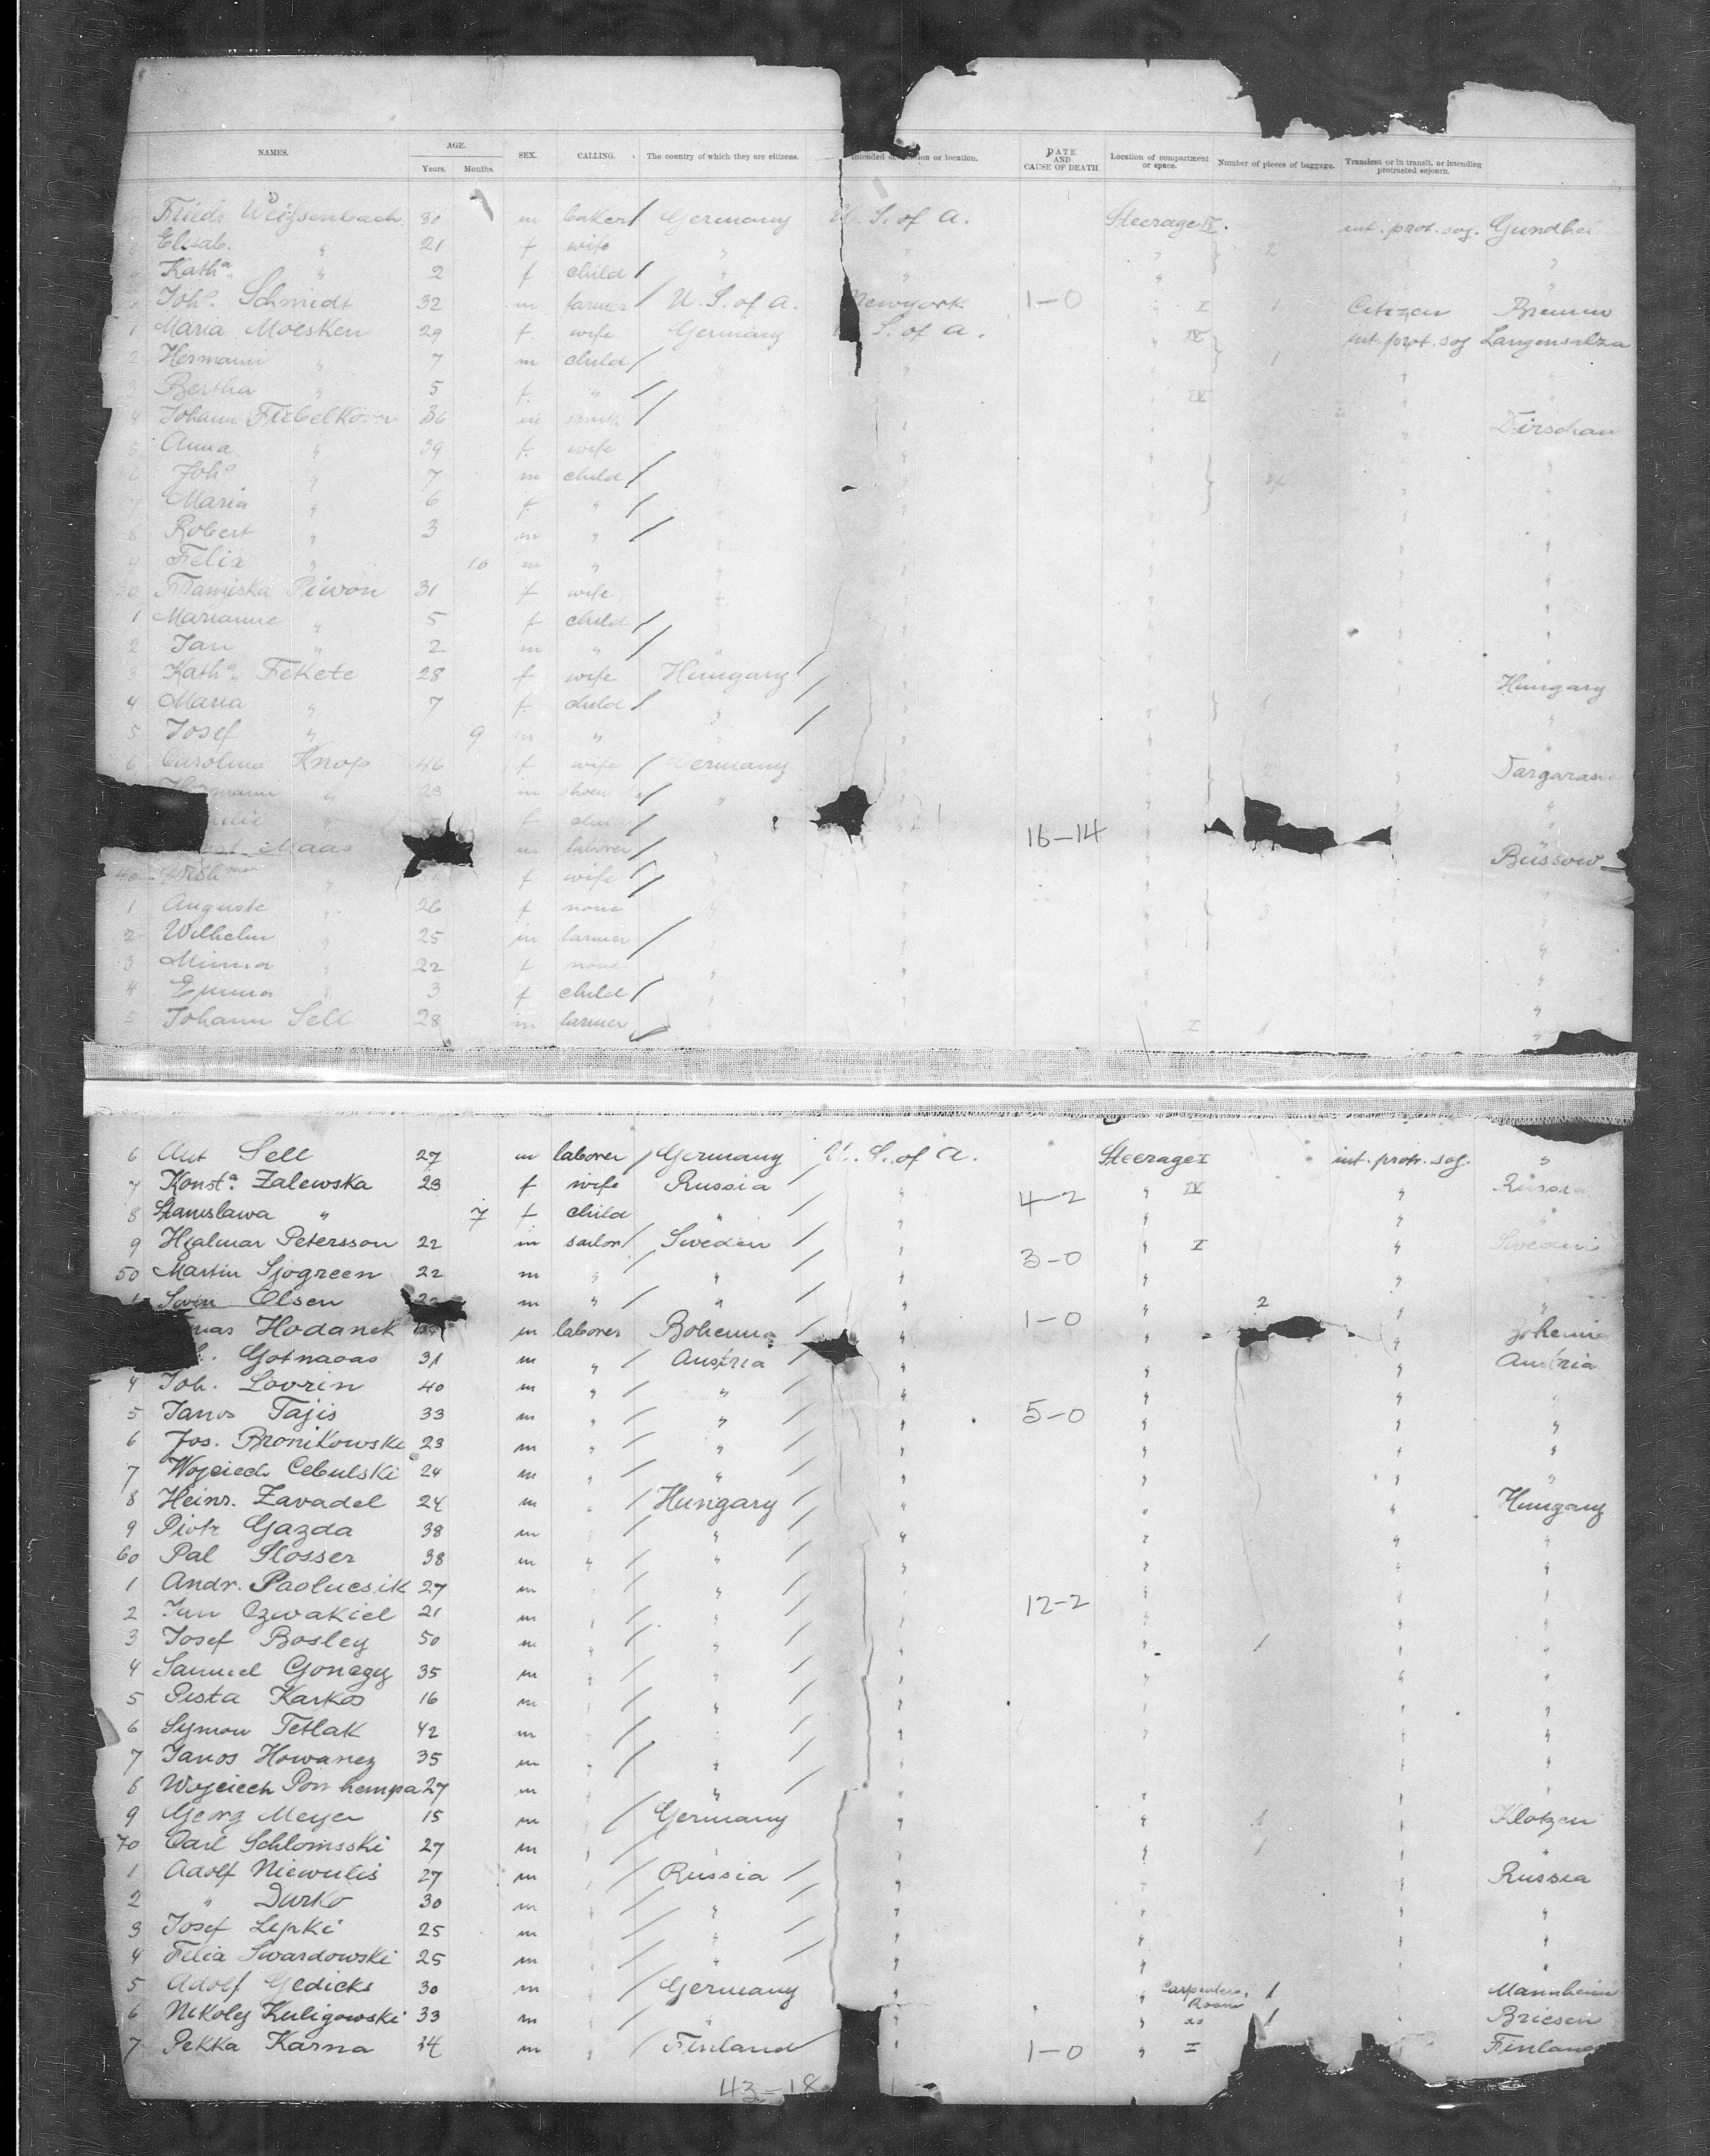 NAMES. AGE. Years. Months. SEX. CALLING. The country of which they are citizens. Intended or location. DATE AND CAUSE OF DEATH Location of compartment or space. Number of pieces of baggage. Transient or in transit, or intending protracted sojourn.
Friedr. 30 m baker / Germany U. S. of A. Steerage IV. int. prot. soj.
Elisab. " 21 f wife " " " 2 "
Kath.a " 2 f child / " " " "
Joh.s Schmidt 32 m farmer / U. S. of A. Newyork 1-0 " I 1 Citizen Bremen
1 Maria Moesken 29 f. wife Germany S. of A. " IV int. prot. soj Langensalza
2 Hermann " 7 m child / " " 1 " "
3 Bertha " 5 f. " / IV "
4 Johann Fiebelkorn 36 m smith / " " " Dirschau
5 Anna " 39 f. wife " " "
6 Joh.s " 7 m child / " " "
7 Maria " 6 f. " / " "
8 Robert " 3 m " / " " "
9 Felix " 10 m " " " " "
30 Franziska Piwon 31 f wife " " " "
1 Marianne " 5 f child / " " "
2 Jan " 2 m " / " " "
3 Kath.a Fekete 28 f wife Hungary / " " Hungary
4 Maria " 7 f. child / " / " " 1 " "
5 Josef " 9 m " / " " " "
6 Caroline Knop 46 f wife / Germany " "
23 m / " " "
f " " 16-14 " "
Maas m laborer / " " Büssow
40 " f wife / " " " "
1 Auguste " 26 f none " " " 3 " "
2 Wilhelm " 25 m farmer / " " " " "
3 Minna " 22 f none " " " " "
4 Emma " 3 f child / " " " " "
5 Johann Sell 28 m farmer " I 1 "
6 Aut Sell 27 m laborer / Germany U. S. of A. Steerage I int. protr. soj. "
7 Konst.a Zalewska 23 f wife Russia / " 4-2 " IV " Russia
8 Stanislawa " 7 f child " / " " " "
9 Hjalmar Petersson 22 m sailor / Sweden / " 3-0 " I " Sweden
50 Martin Sjogreen 22 m " / " / " " " "
1 Sven Olsen m " / " / " 1-0 " 2 " "
Hodanek m laborer Bohemia / " " " Bohemia
Gotnaoas 31 m " / Austria / " " " Austria
4 Joh. Lovrin 40 m " / " / " " " "
5 Janos Tajis 33 m " / " / " 5-0 " " "
6 Jos. Bronikowski 23 m " / " / " " " "
7 Wojciech Cebulski 24 m " / " / " " " "
8 Heinr. Zavadel 24 m " / Hungary / " " " Hungary
9 Piotr Gazda 38 m " / " / " " " "
60 Pal Slosser 38 m " / " / " " " "
1 Andr. Paolucsik 27 m " / " / " " " "
2 Jan Czwakiel 21 m " / " / " 12-2 " " "
3 Josef Bosley 50 m " / " / " " 1 " "
4 Samuel Gonczy 35 m " / " / " " " "
5 Pista Karkos 16 m " / " / " " " "
6 Symon Tetlak 42 m " / " / " " " "
7 Janos Howanez 35 m " / " / " " " "
8 Wojciech 27 m " / " / " " " "
9 Georg Meyer 15 m " / Germany " " 1 " Klotzen
70 Carl Schlomsski 27 m " / " " " 1 " "
1 Adolf Niewulis 27 m " / Russia / " " " Russia
2 " Durko 30 m " / " / " " " "
3 Josef Lipki 25 m " / " / " " " "
4 Felix Swardowski 25 m " / " / " " " "
5 Adolf Gedicks 30 m " / Germany " " Carpenters Room 1 Mannheim
6 Nikoley Kuligowski 33 m " / " " " do 1 " Briesen
7 Pekka Karna 34 m " / Finland / " 1-0 " I Finland
43-18